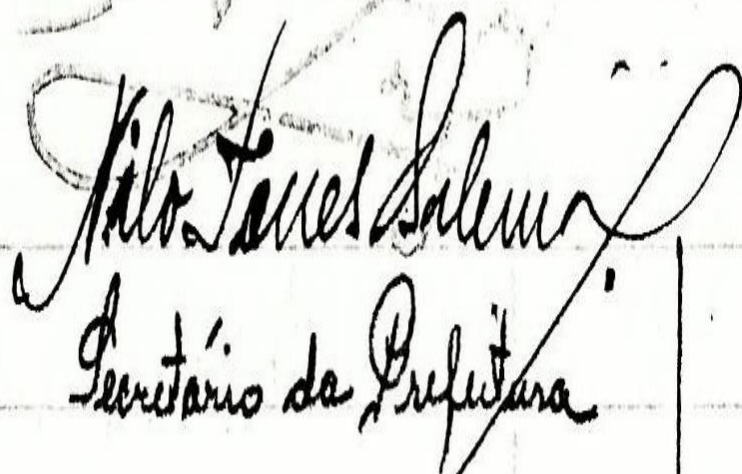 Nilo Torres Salem
Secretário da Prefeitura